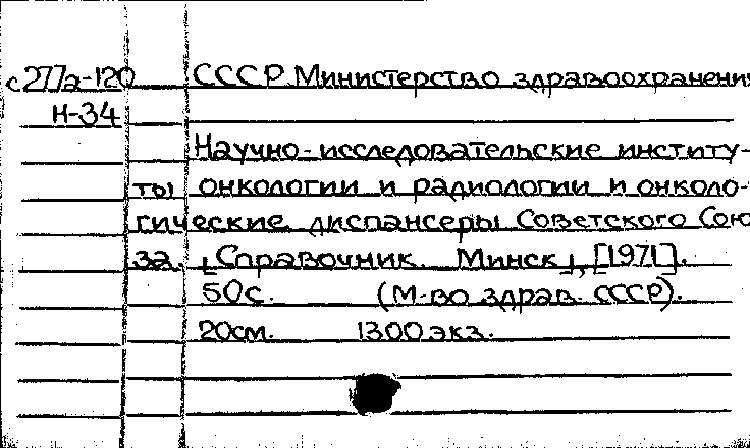 с277а-120 СССР. Министерство здравоохранения
Н-34
Научно-исследовательские институ-
ты онкологии и радиологии и онколо-
гические диспансеры Советского Сою
за. [Справочник. Минск], [1971].
50с. (М-во здрав. СССР).
20см. 1300экз.